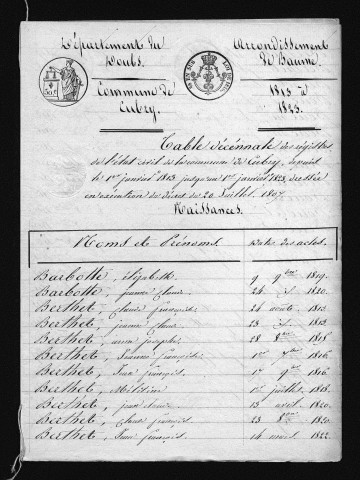 Département du Doubs.
Arrondissement de Baume.
Commune de Cubry.
1813 à 1823.
Table décennale des régistres
de l'état civil de la commune de Cubry, depuis
le 1er janvier 1813 jusqu'au 1er janvier 1823, dressée
en exécution du décret du 20 Juillet 1807.
Naissances.
Noms et Prénoms Dates des actes.
Barbotte, élizabeth 9 9bre 1819.
Barbotte, jeanne Claude 26 1820.
Berthet, Claude françois 24 août 1813
Berthet, jeanne Claude 23 1813
Berthet, anne josephe 28 8bre 1815
Berthet, Jeanne françoise 1er 7bre 1816
Berthet, Jean françois 17 9bre 1816
Berthet, 1er juillet 1818.
Berthet, jean Claude 13 avril 1820.
Berthet, Claude françois 23 8bre 1820
Berthet, Jean françois 14 mars 1822.